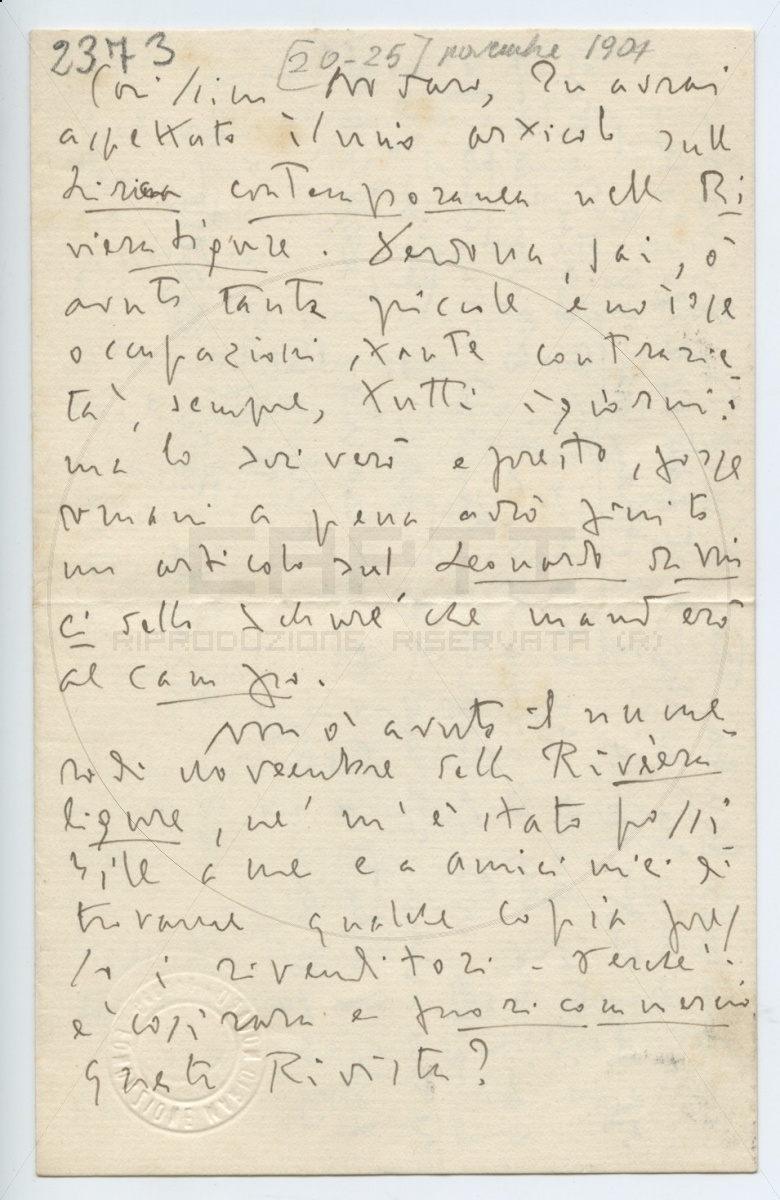 2373 [20-25] novembre 1907
Carissimo Novaro, Tu avrai
aspettato il mio articolo sulla
Lirica contemporanea nella Ri
viera Ligure. Perdona, sai, ò
avuto tante piccole e noiose
occupazioni, tante contrarie
tà, sempre, tutti i giorni:
ma lo scriverò e presto, forse
domani a pena avrò finito
un articolo sul Leonardo da Vin
ci dello Schuré che manderò
al Campo.
Non ò avuto il nume
ro di novembre della Riviera
ligure, né m'è stato possi
bile a me e a amici miei di
trovarne qualche copia pres
so i rivenditori - Perché
è così rara e fuori commercio
questa Rivista?
CAPTI
RIPRODUZIONE RISERVATA (R)